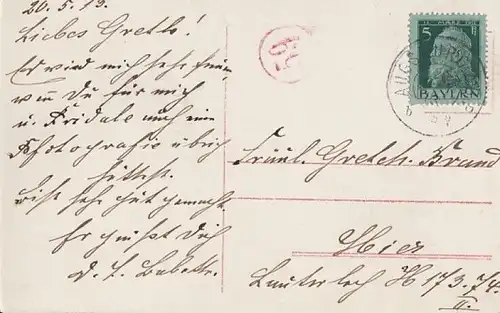 20.5.13.
Liebes Gretls!
Es wird mich sehr freuen
wenn Du für mich
u. Fridale noch eine
Photografie übrig
hättest.
ist sehr gut gemacht.
Es grüßt Dich
d. l. Babette.
59
5 Pf
BAYERN
AUGSBURG
Fräul. Gretch. Brand
Hier
Lauterlech H 173.74.
II.